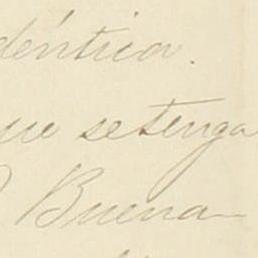 déntica.
ue setenga
Buena